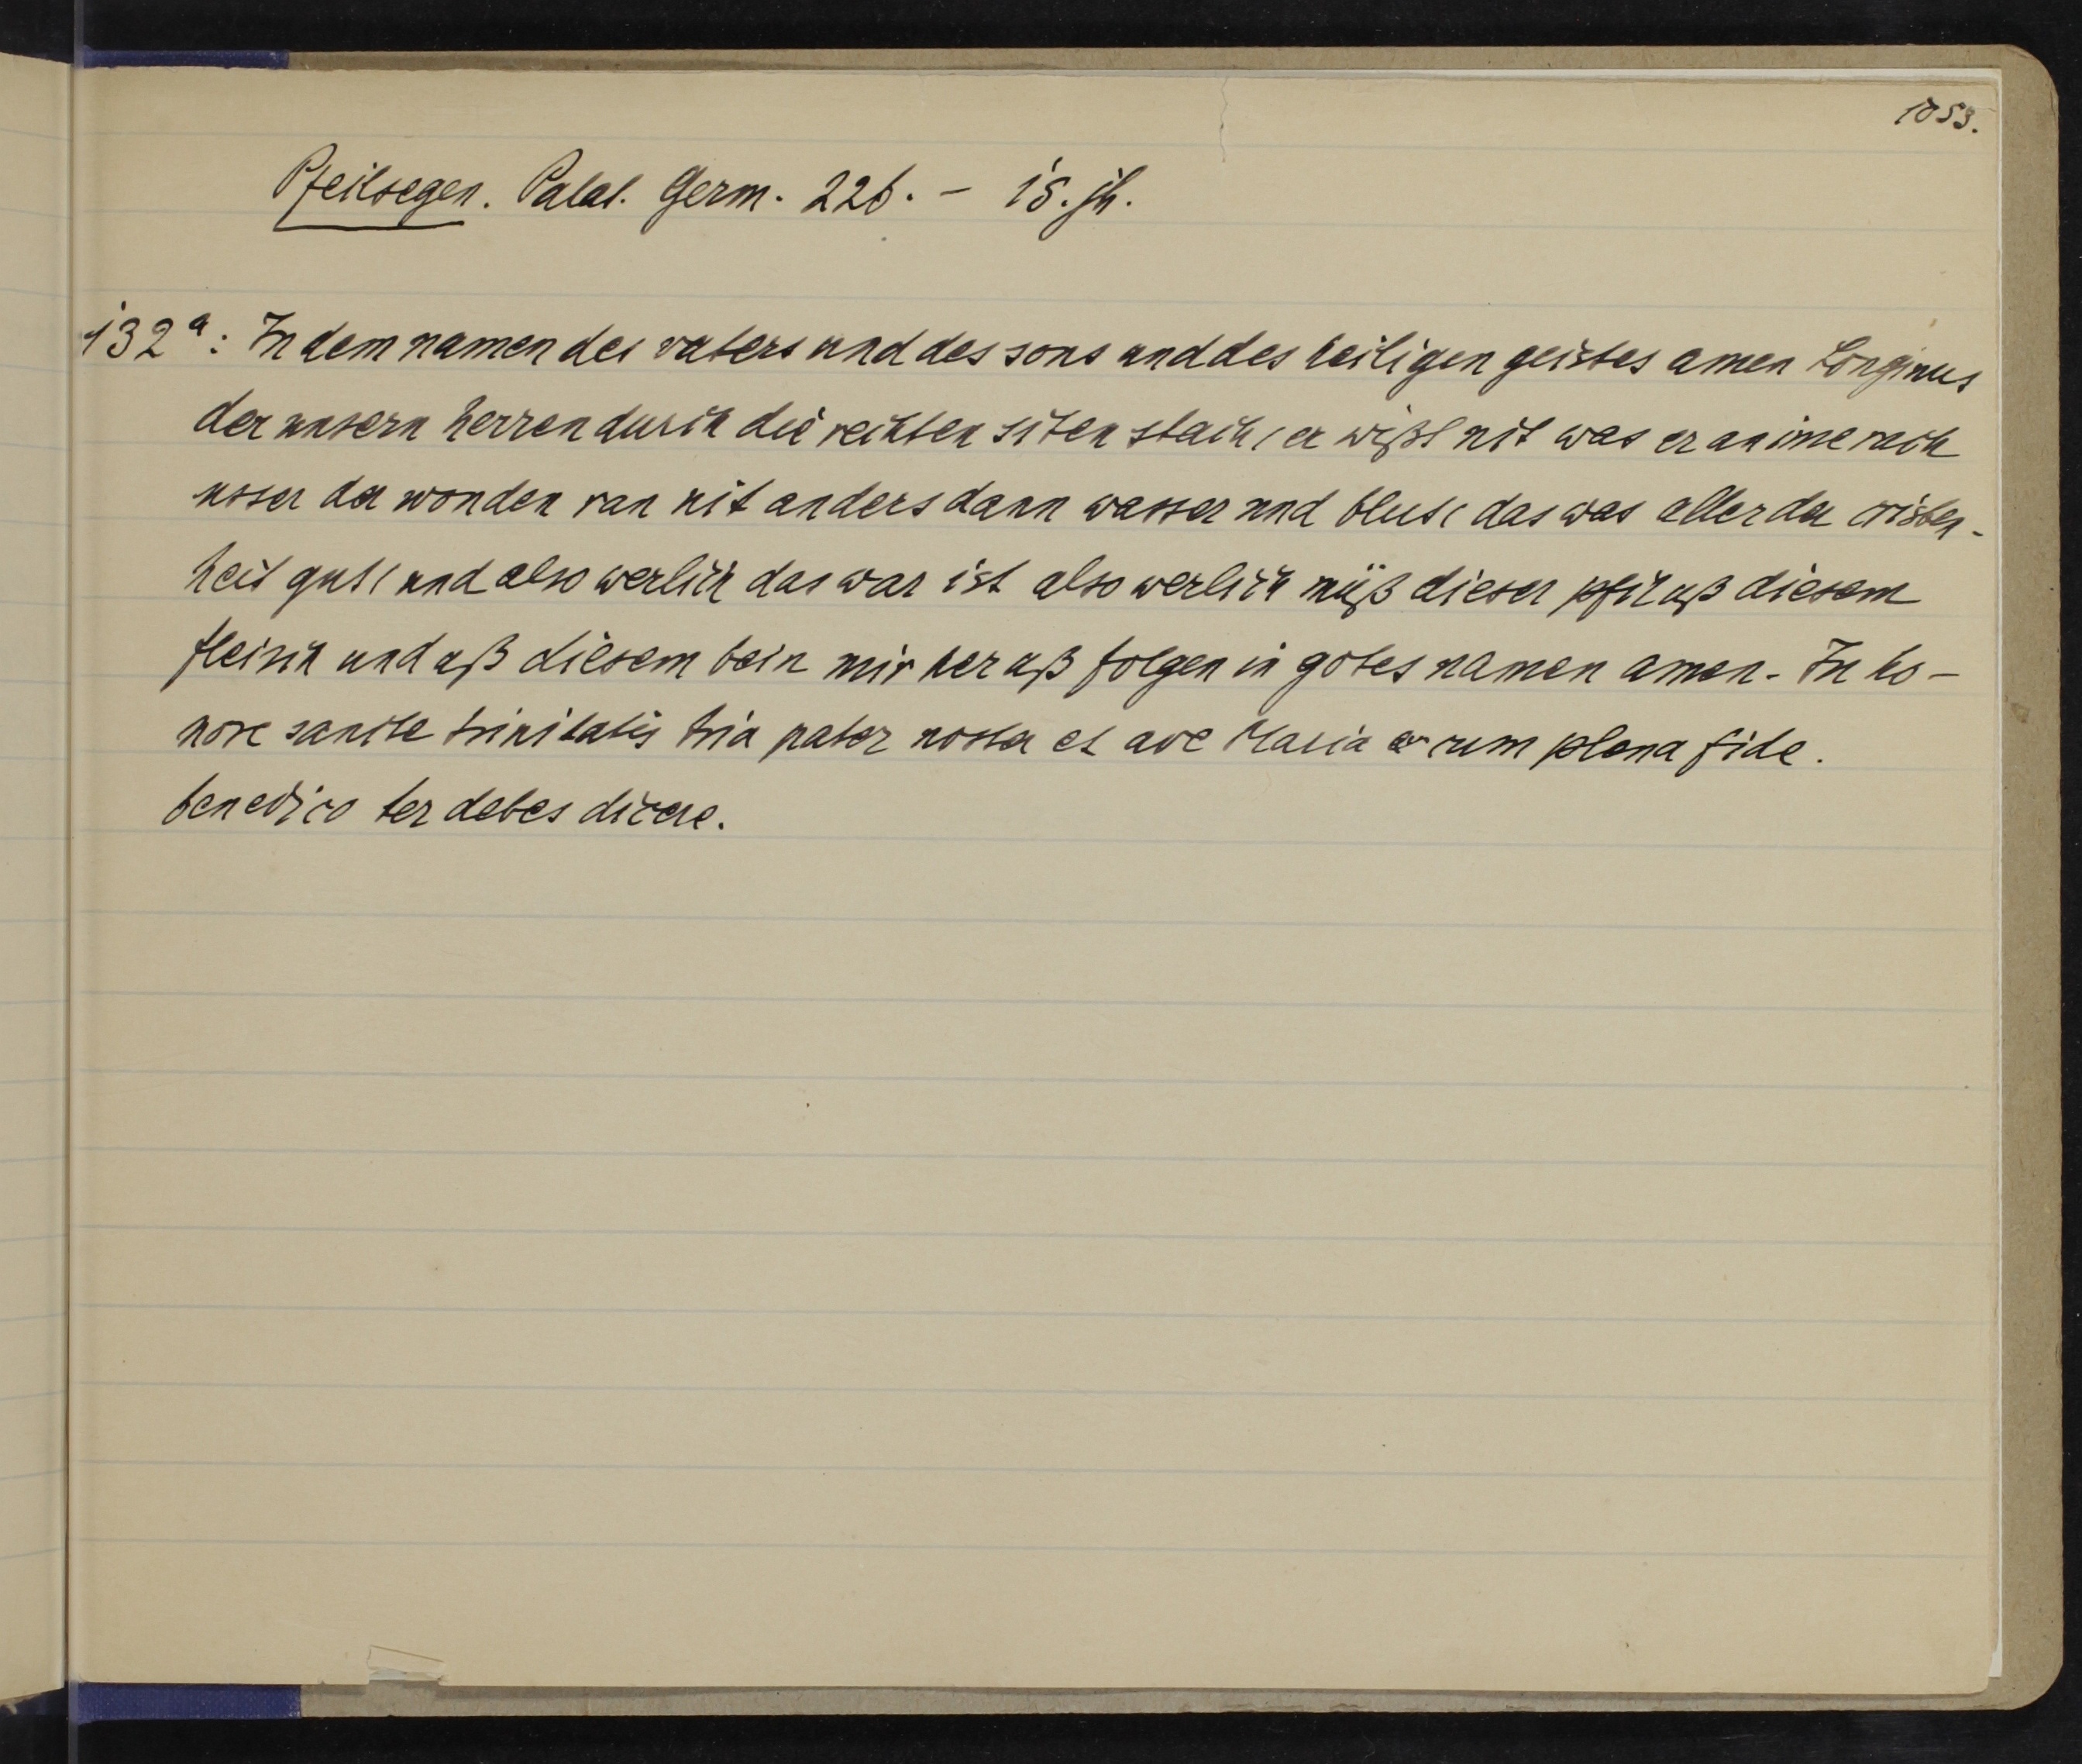 1053.
Pfeilsegen. Palat. Germ. 226. – 15. jh.
132ᵃ: In dem namen des vaters und des sons und des heiligen geistes amen Longinus
der unsern herren durch die rechten siten stach, er wißt nit was er an ime rach
usser der wonden ran nit anders dann wasser und blut, das was aller der cristen-
heit gut, und also werlich das war ist also werlich müß dieser pfil uß diesem
fleisch und uß diesem bein mir her uß folgen in gotes namen amen. In ho–
nore sancte trinitatis tria pater noster et ave Maria cum plena fide.
benedico ter debes dicere.